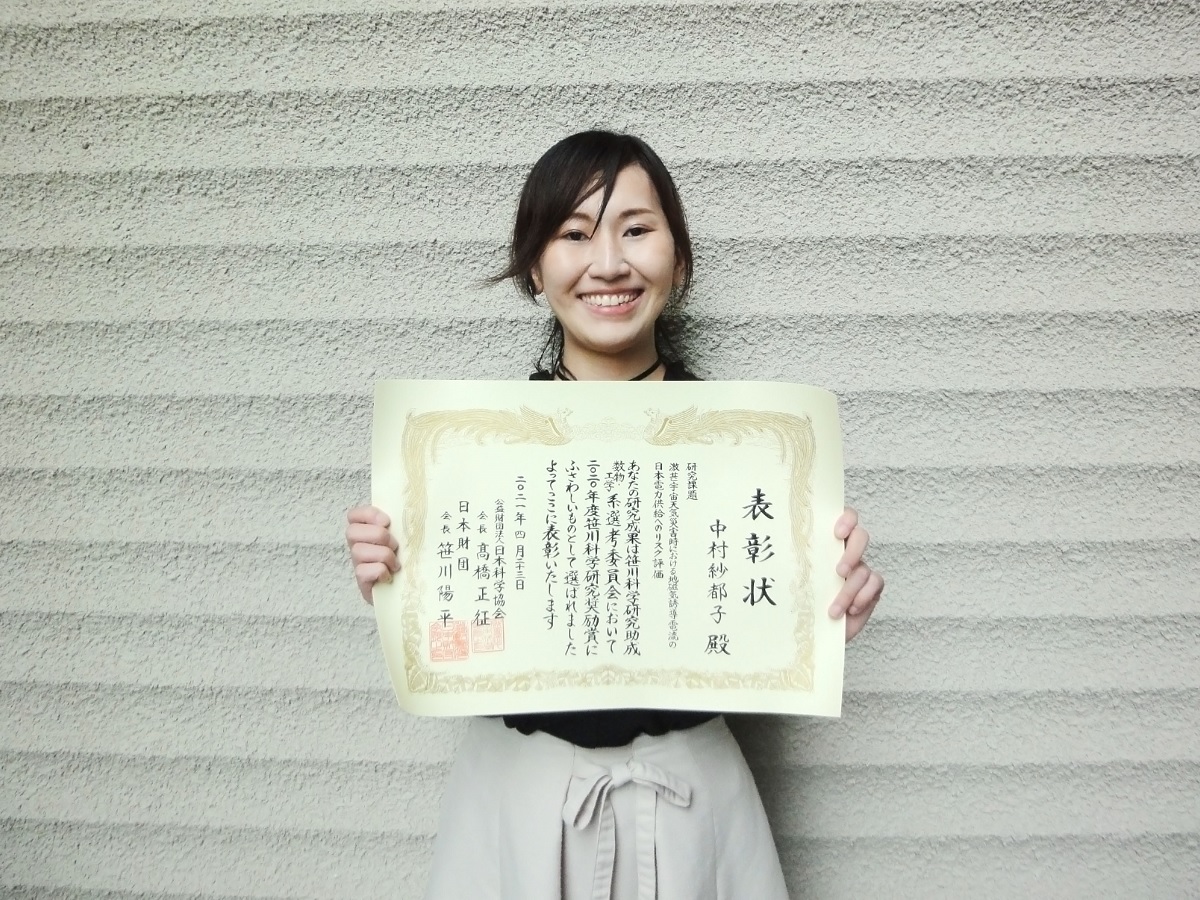 表彰状
中村紗都子 殿
研究課題
激甚宇宙天気災害時における地磁気誘導電流の
日本電力供給へのリスク評価
あなたの研究成果は笹川科学研究助成
数物・工学系選考委員会において
二〇二〇年度笹川科学研究奨励賞に
ふさわしいものとして選ばれました
よってここに表彰いたします
二〇二一年 四月二十三日
公益財団法人日本科学協会
会長 髙橋正征
日本財団
会長 笹川陽平